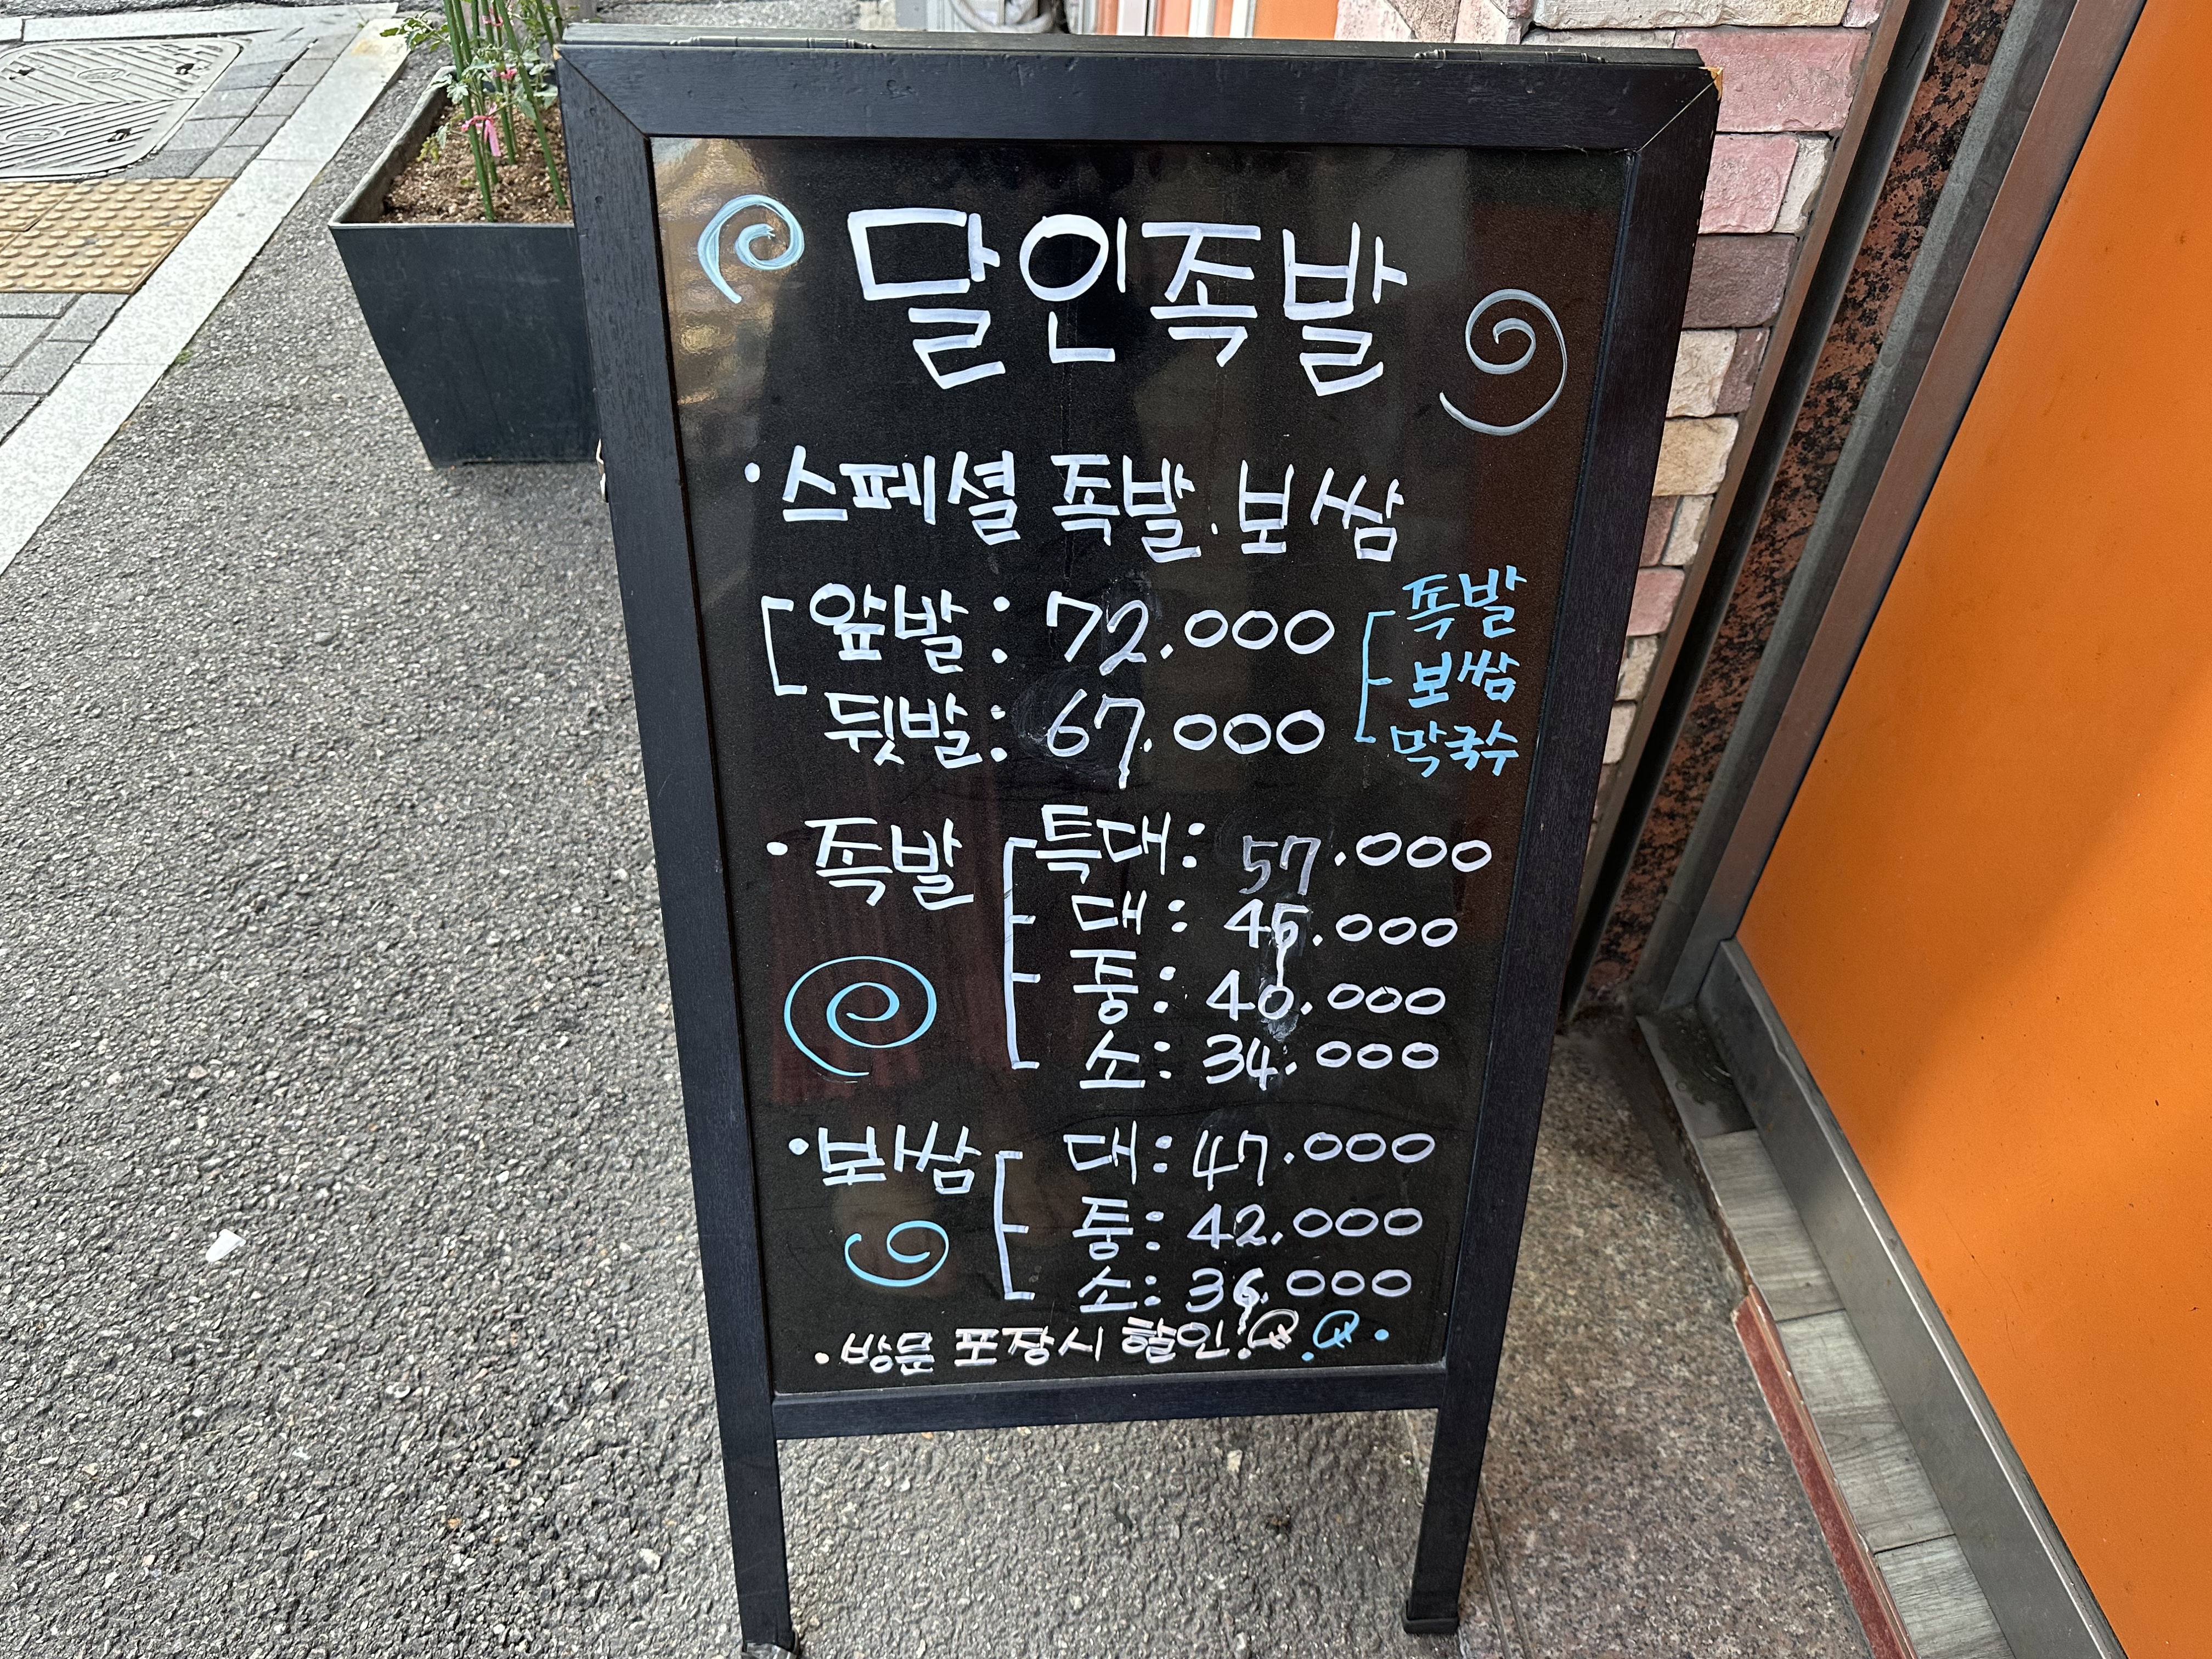 달인족발
· 스페셜 족발. 보쌈
앞발 : 72.000
뒷발 : 67.000
족발
보쌈
막국수
· 족발
특대 : 57.000
대 : 45.000
중 : 40.000
소 : 34.000
· 보쌈
대 : 47.000
중 : 42.000
소 : 36.000
· 방문 포장시 할인